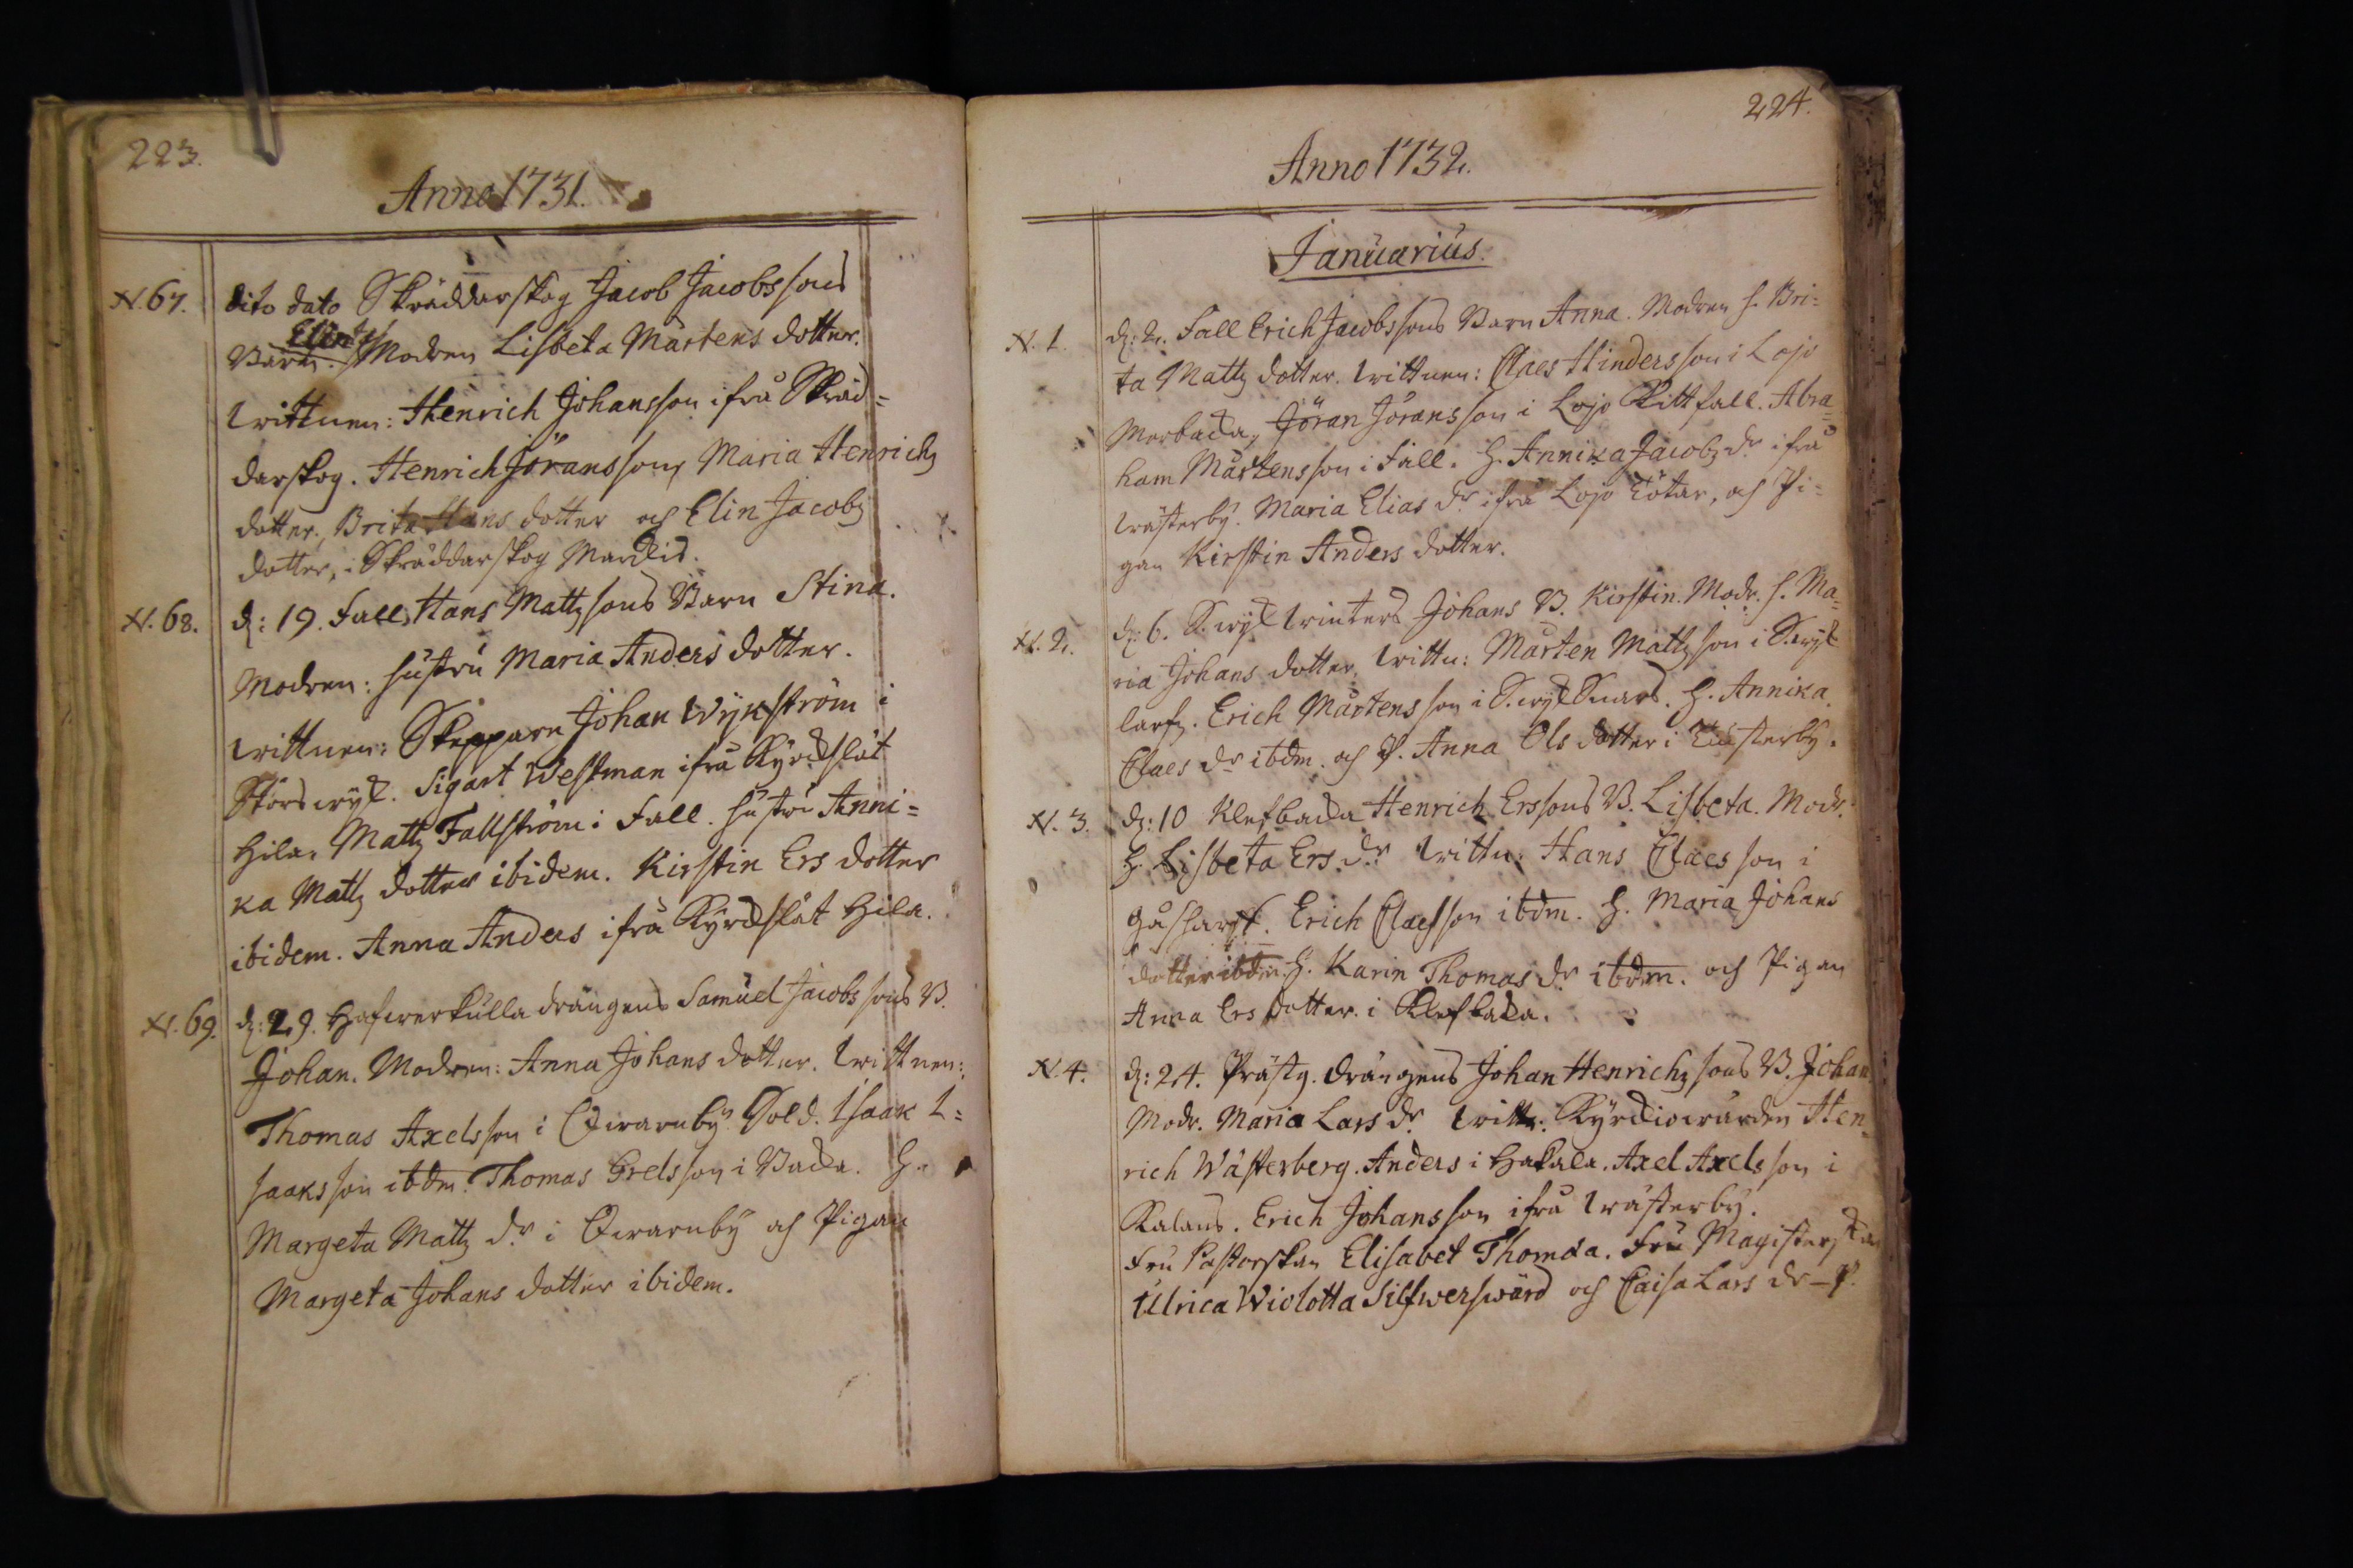 223.
Anno 1731.
N. 67. dito dato Skräddarskog Jacob Jacobssons
Elin
Barn. Modren Lisbeta Mårtens dotter.
Wittnen: Henrich Johansson ifrå Skräd=
darskog. Henrich Jöransson, Maria Henrichz
dotter, Brita Hans dotter och Elin Jacobz
dotter, i Skräddarskog
N. 68. d: 19. Fall, Hans Mattzsons Barn Stina.
Modren: hustru Maria Anders dotter.
Wittnen: Skepparn Johan Wijkström i
Storswijk. Sigart Westman ifrå Kyrckslät
Hila, Mattz Fallström i Fall. hustru Anni=
ka Mattz dotter ibidem. Kirstin Ers dotter
ibidem. Anna Anders ifrå Kyrckslät Hila.
N. 69. d: 29. Hafwerkulla drängens Samuel Jacobssons B.
Johan. Modren: Anna Johans dotter. Wittnen:
Thomas Axelsson i Qwarnby. Sold. Isaak I=
saaksson ibdm. Thomas Grelsson i Backa. H.
Margeta Mattz dr i Qwarnby och Pigan
Margeta Johans dotter ibidem.
224.
Anno 1732.
Januarius.
N. 1. d: 2. Fall Erich Jacobssons Barn Anna. Modren h. Bri=
ta Mattz dotter. Wittnen: Claes Hindersson i Lojo
Morbacka, Jöran Jöransson i Lojo Kittfall. Abra=
ham Mårtensson i Fall. H. Annika Jacobz dr ifrå
Wästerby. Maria Elias dr ifrå Lojo Tötar, och Pi=
gan Kirstin Anders dotter.
N. 2. d: 6. S.wijk Winters Johans B. Kirstin. Modr. h. Ma=
ria Johans dotter. Wittn: Mårten Mattzson i S.wijk
larfz. Erich Mårtensson i S.wijk Knars. H. Annika
Claes dr ibdm. och P. Anna Ols dotter i Tiusterby.
N. 3. d: 10 Klefbacka Henrich Erssons B. Lisbeta. Modr.
H. Lisbeta Ers dr Wittn: Hans Claesson i
Erich Claesson ibdm. H. Maria Johans
dotter ibdm. H. Karin Thomas dr ibdm. och Pigan
Anna Ers dotter i Klefbacka.
N. 4. d: 24. Prästg. drängens Johan Henrichzsons B. Johan
Modr. Maria Lars dr Wittn: Kyrckiowärden Hen=
rich Wästerberg. Anders i Hakala. Axel Axelsson i
Kalans. Erich Johansson ifrå Wästerby.
Fru Pastorskan Elisabet Thomæa. Fru Magisterskan
Ulrica Wiolotta Silfwerswärd och Caisa Lars dr – P.